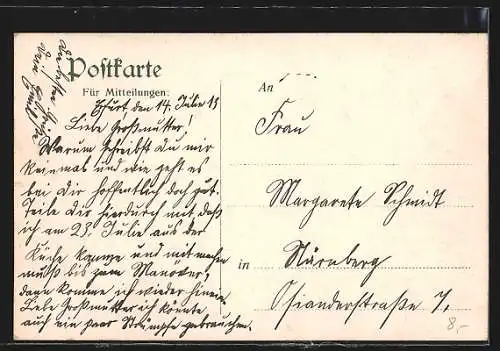 Postkarte
Für Mitteilungen:
Erfurt den 14. Julie 13
Liebe Großmutter!
Warum schreibst du mir
keinmal und wie geht es
bei Dir hoffentlich doch gut.
Teile Dir hierdurch mit daß
ich am 28. Julie aus der
Küche komme und mit machen
muß bis zum Manöver,
dann komme ich wieder hinein.
Liebe Großmutter ich könnte
auch ein paar Strümpfe gebrauchen.
An
Frau
Margarete Schmidt
in Nürnberg
Osianderstraße 7.
8,-